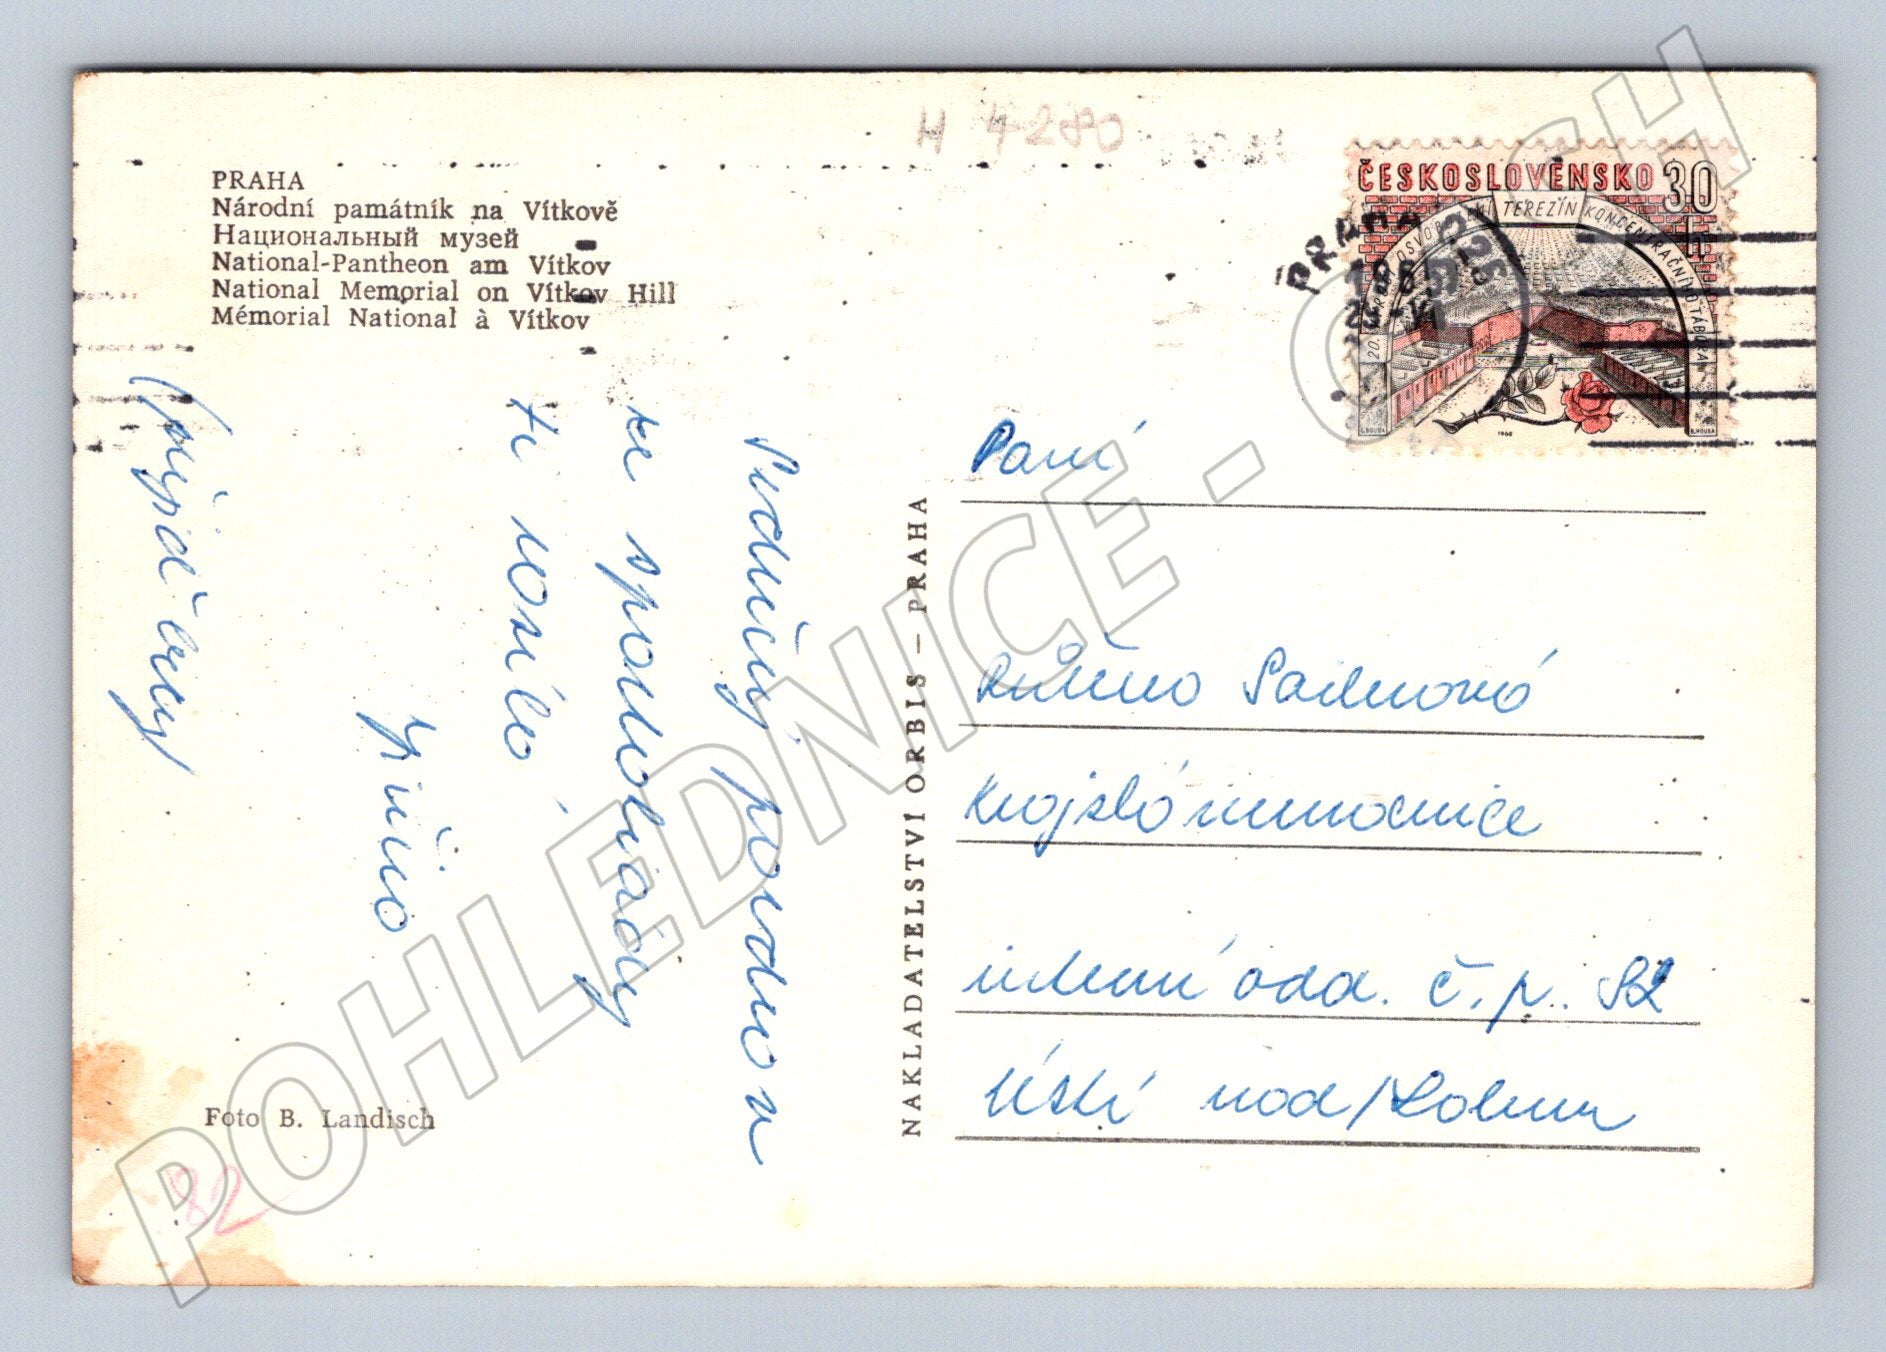 H 4280
PRAHA
Národní památník na Vítkově
Национальный музей
National-Pantheon am Vítkov
National Memorial on Vítkov Hill
Mémorial National à Vítkov
ČESKOSLOVENSKO 30 h
20. VÝROČÍ OSVOBOZENÍ TEREZÍN KONCENTRAČNÍHO TÁBORA
C. BOUDA
1965
B. HOUSA
PRAHA
Srdečný pozdrav
ze spartakiády
ti posílá
Jiřina
(přijď brzy)
NAKLADATELSTVÍ ORBIS – PRAHA
Paní
Růžena
Krajská nemocnice
interní odd. č. p. 82
Ústí nad/Labem
Foto B. Landisch
82
POHLEDNICE - CH